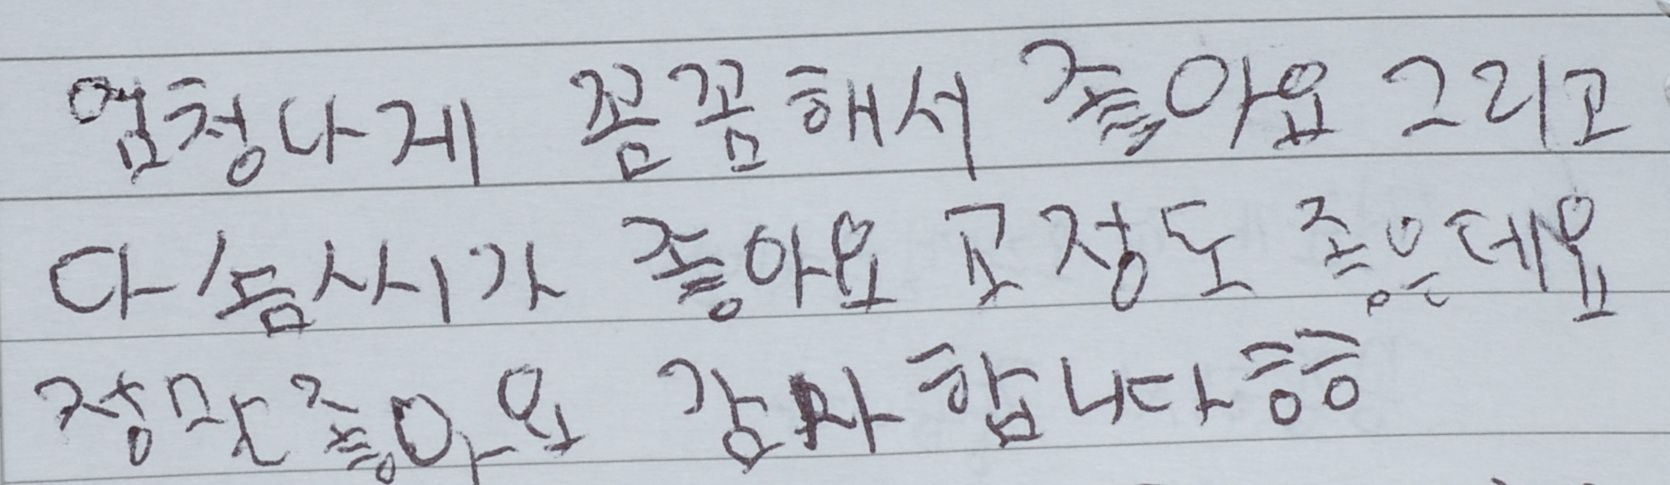 엄청나게 꼼꼼해서 좋아요 그리고
다솜씨가 좋아요 고정도 좋은데요
정말좋아요 감사합니다ㅎㅎ